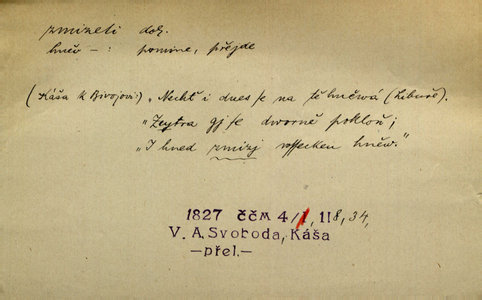 zmizeti dok.
hněv —: pomine, přejde
(Káša k Bivojovi:) „Nechť i dnes je na tě hněwá (Libuše).
„Zeytra gj se dworně pokloň;
„I hned zmizj wssecken hněw."
1827 ČČM 4/1, 118, 34,
V. A. Svoboda, Káša
—přel.—